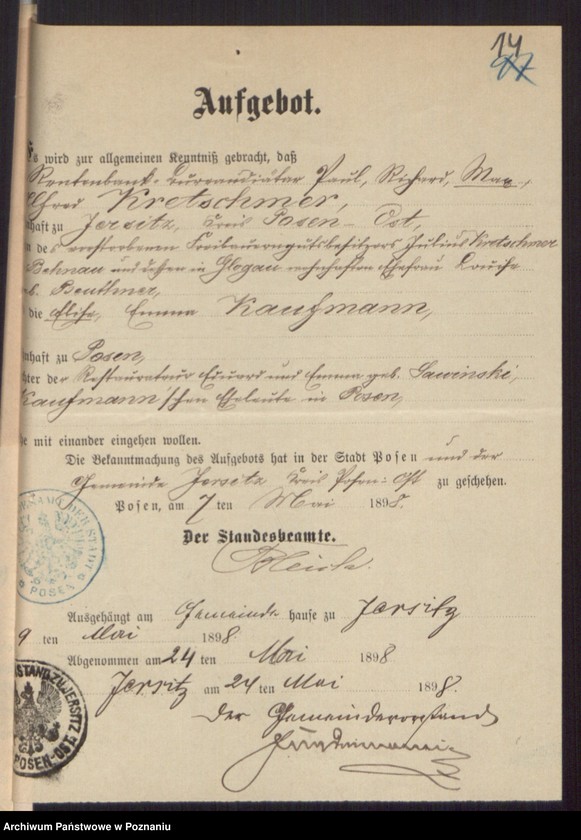 14
97
Aufgebot.
Es wird zur allgemeinen Kenntniß gebracht, daß
Rentenbank-Bureaudiätar Paul, Richard, Max,
Alfred Kretschmer,
nhaft zu Jersitz, Kreis Posen-Ost,
n des verstorbenen Freibauergutsbesitzers Julius Kretschmer
Behnau und dessen in Glogau wohnhaften Ehefrau Louise
eb. Beuthner,
die Elise, Emma Kaufmann,
nhaft zu Posen,
chter der Restaurateur Eduard und Emma geb. Sawinski,
Kaufmann'schen Eheleute in Posen,
e mit einander eingehen wollen.
Die Bekanntmachung des Aufgebots hat in der Stadt Posen und der
Gemeinde Jersitz Kreis Posen-Ost zu geschehen.
Posen, am 7 ten Mai 1898.
Der Standesbeamte.
DESAMT DER STADT
POSEN
Ausgehängt am Gemeindehause zu Jersitz
9 ten Mai 1898
Abgenommen am 24 ten Mai 1898
Jersitz am 24 ten Mai 1898.
Der Gemeindevorstand
STAND ZU JERSITZ
POSEN-OST
Archiwum Państwowe w Poznaniu